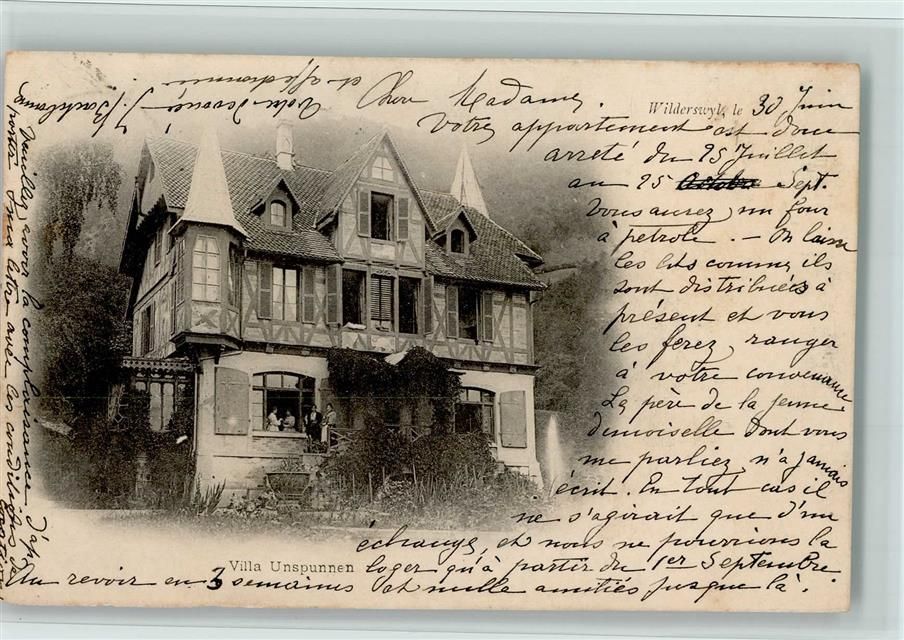 Chère Madame,
Wilderswyl, le 30 Juin
Votre appartement est donc
arrêté du 25 Juillet
au 25 Sept.
Vous aurez un four
à pétrole. — On laisse
les lits comme ils
sont distribués à
présent et vous
les ferez ranger
à votre convenance
Le père de la jeune
demoiselle dont vous
me parliez n'a jamais
écrit. En tout cas il
ne s'agirait que d'un
échange, et nous ne pourrions la
loger qu'à partir du 1er Septembre
Villa Unspunnen
Au revoir en 3 semaines et mille amitiés jusque là.
Veuillez avoir la complaisance d'ap-
porter une lettre avec les conditions de
Votre dévouée
et affectionnée